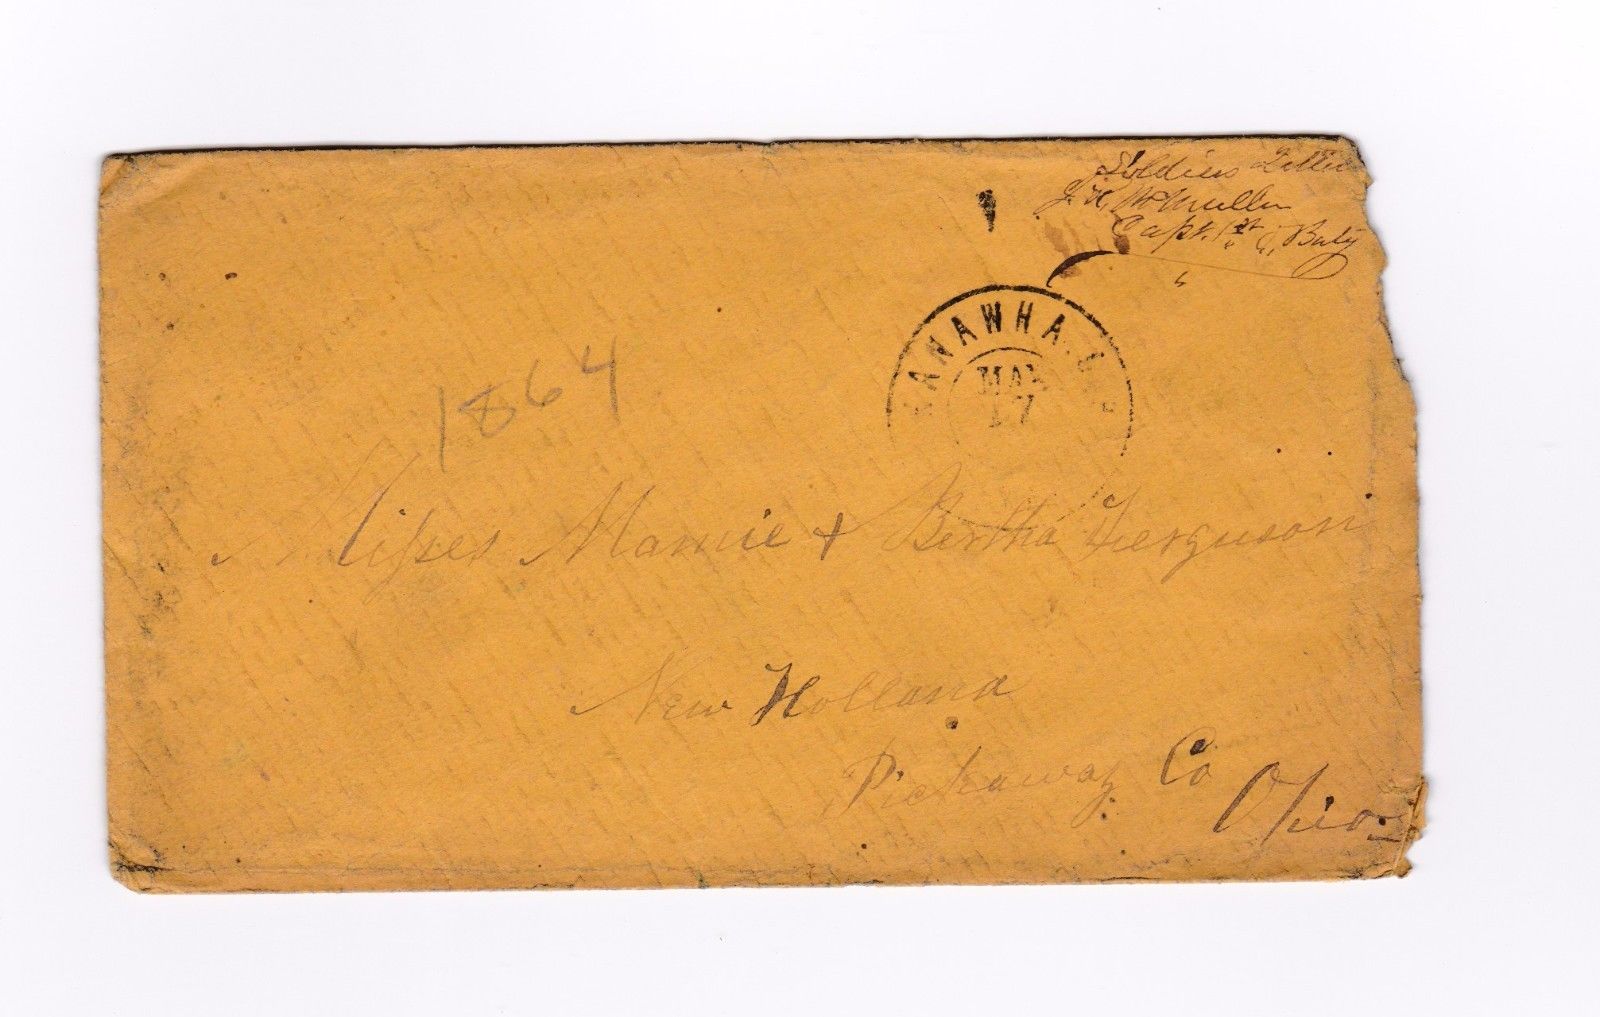 Soldiers Letter
J. R. McMullin
Capt. 1st O. Baty
KANAWHA
MAY
17
1864
Misses Mamie & Bertha Ferguson
New Holland
Pickaway Co
Ohio